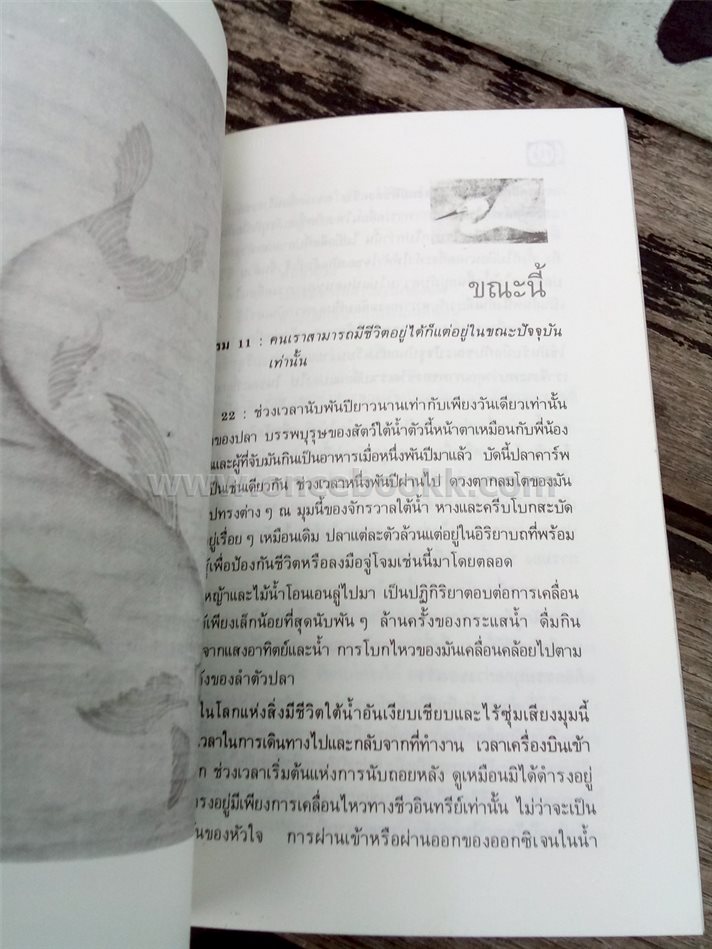 ขณะนี้
รม 11 : คนเราสามารถมีชีวิตอยู่ได้ก็แต่อยู่ในขณะปัจจุบัน
เท่านั้น
22 : ช่วงเวลานับพันปียาวนานเท่ากับเพียงวันเดียวเท่านั้น
ของปลา บรรพบุรุษของสัตว์ใต้น้ำตัวนี้หน้าตาเหมือนกับพี่น้อง
และผู้ที่จับมันกินเป็นอาหารเมื่อหนึ่งพันปีมาแล้ว บัดนี้ปลาคาร์พ
เป็นเช่นเดียวกัน ช่วงเวลาหนึ่งพันปีผ่านไป ดวงตากลมโตของมัน
ปทรงต่าง ๆ ณ มุมนี้ของจักรวาลใต้น้ำ หางและครีบโบกสะบัด
ยู่เรื่อย ๆ เหมือนเดิม ปลาแต่ละตัวล้วนแต่อยู่ในอิริยาบถที่พร้อม
เพื่อป้องกันชีวิตหรือลงมือจู่โจมเช่นนี้มาโดยตลอด
หญ้าและไม้น้ำโอนเอนลู่ไปมา เป็นปฏิกิริยาตอบต่อการเคลื่อน
เพียงเล็กน้อยที่สุดนับพัน ๆ ล้านครั้งของกระแสน้ำ ดื่มกิน
จากแสงอาทิตย์และน้ำ การโบกไหวของมันเคลื่อนคล้อยไปตาม
ของลำตัวปลา
ในโลกแห่งสิ่งมีชีวิตใต้น้ำอันเงียบเชียบและไร้ซุ่มเสียงมุมนี้
วลาในการเดินทางไปและกลับจากที่ทำงาน เวลาเครื่องบินเข้า
ก ช่วงเวลาเริ่มต้นแห่งการนับถอยหลัง ดูเหมือนมิได้ดำรงอยู่
รงอยู่มีเพียงการเคลื่อนไหวทางชีวอินทรีย์เท่านั้น ไม่ว่าจะเป็น
นของหัวใจ การผ่านเข้าหรือผ่านออกของออกซิเจนในน้ำ